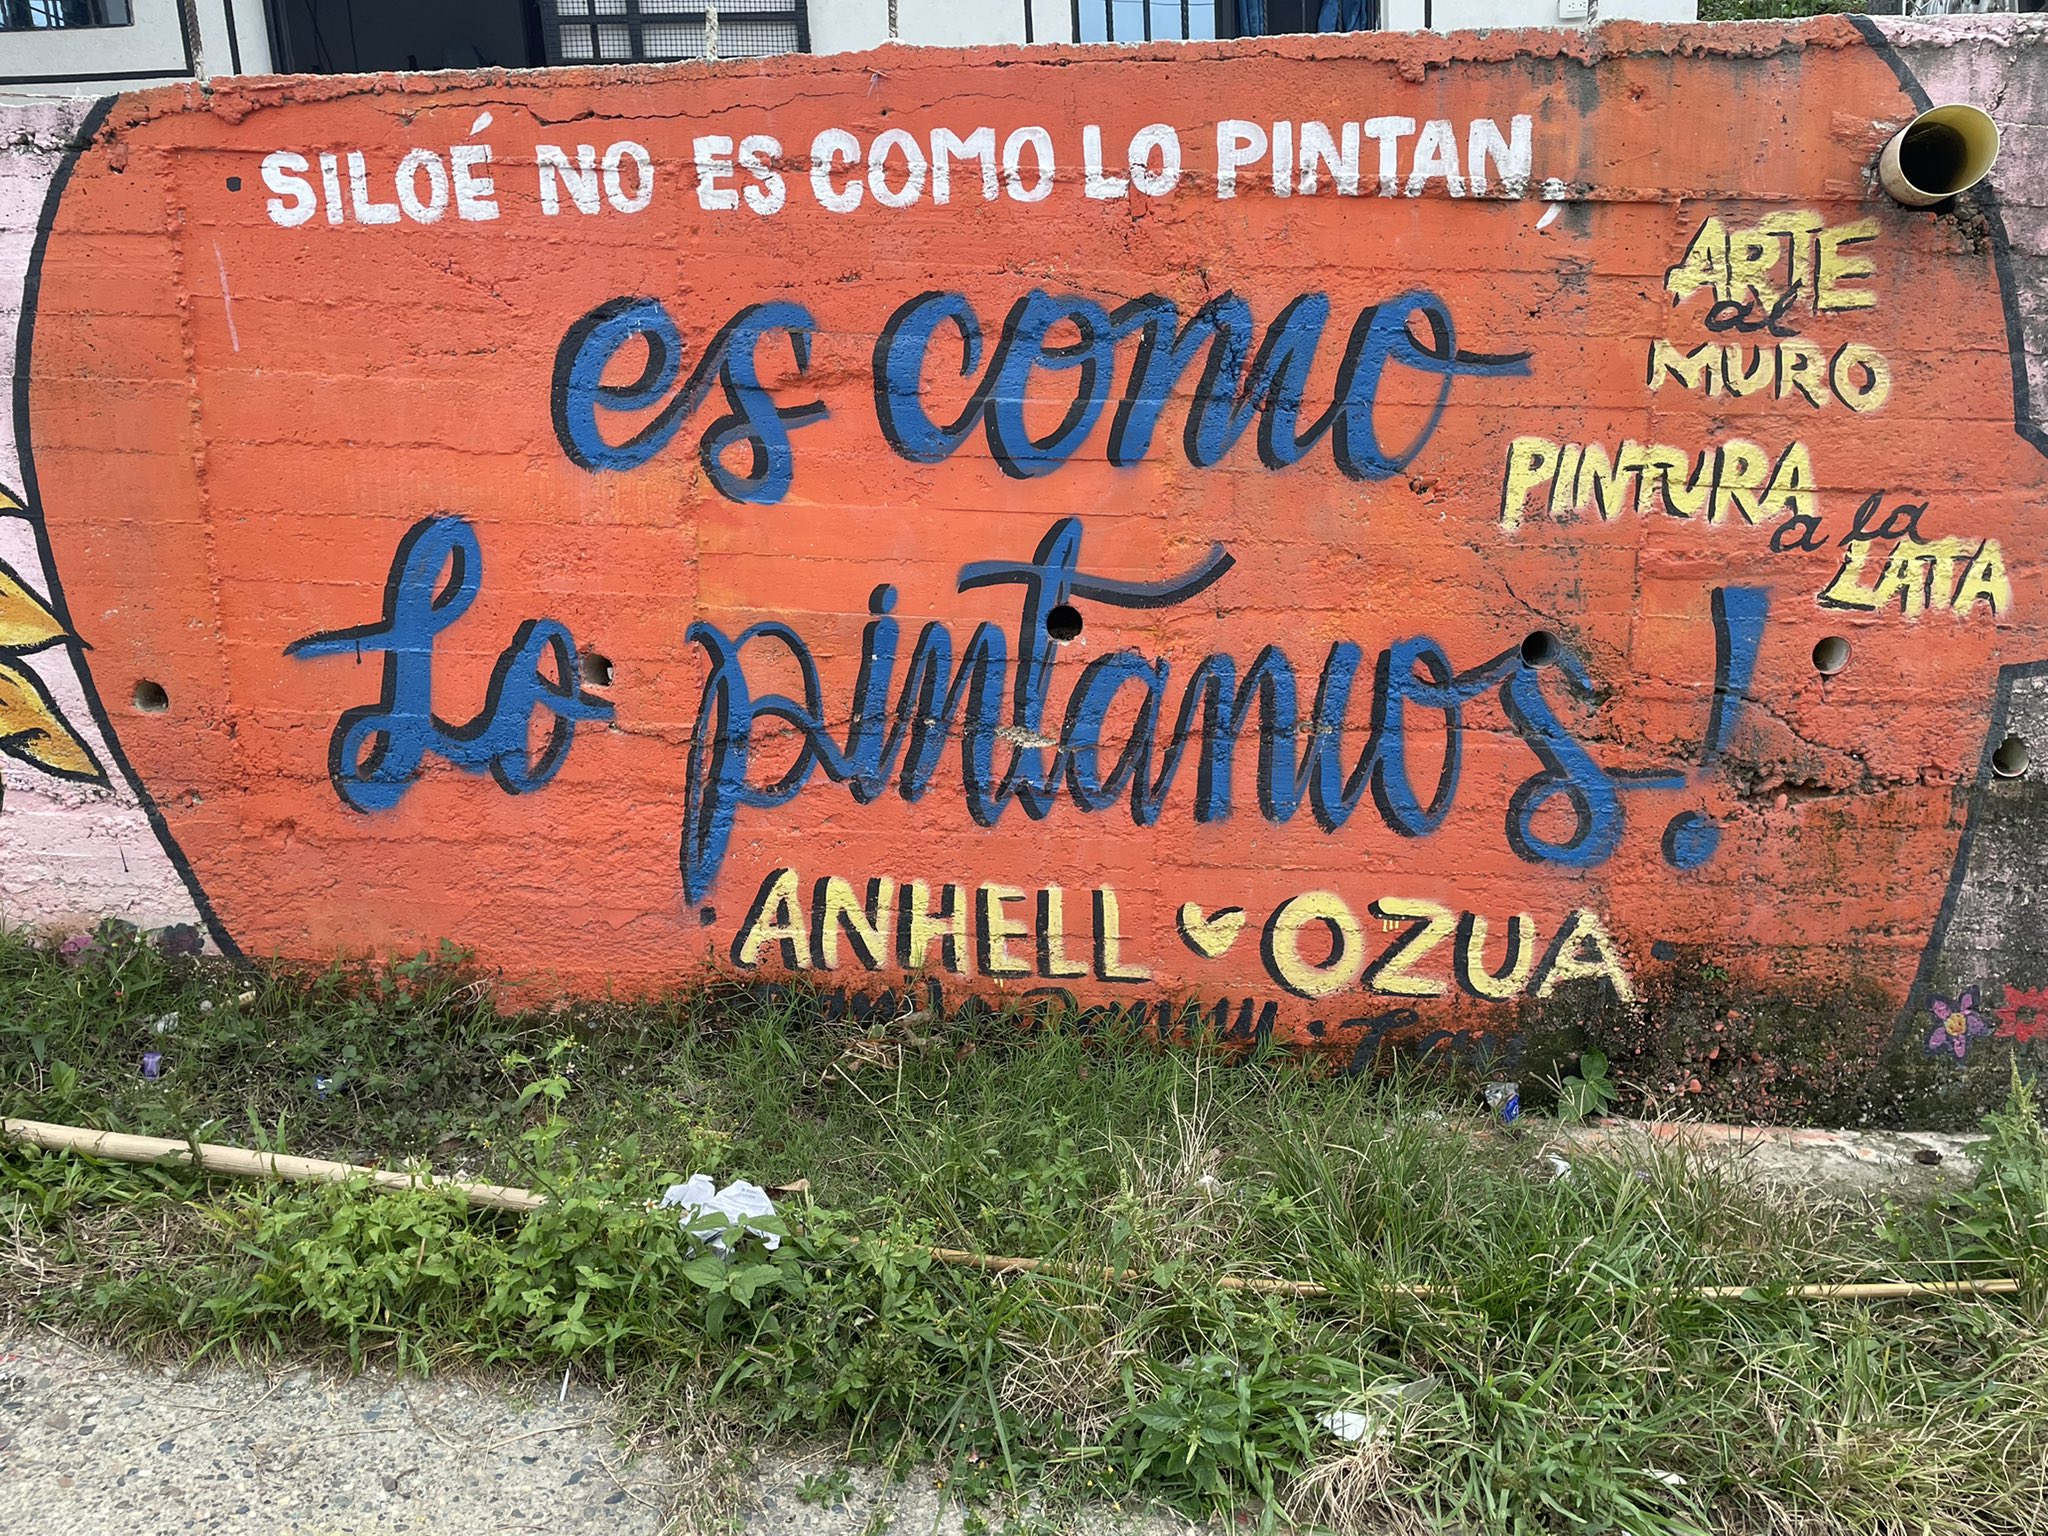 SILOÉ NO ES COMO LO PINTAN,
es como
Lo pintamos!
ARTE
al
MURO
PINTURA
a la
LATA
ANHELL OZUA
Danny